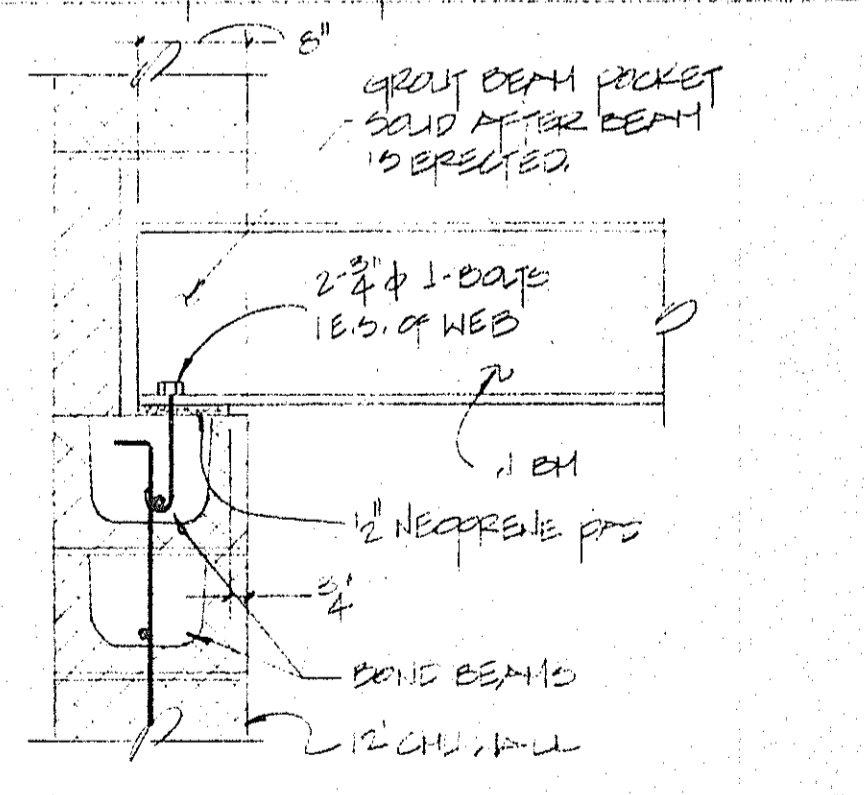 8"
GROUT BEAM POCKET
SOLID AFTER BEAM
IS ERECTED.
2-3/4" φ J-BOLTS
1 E.S. OF WEB
BM
1/2" NEOPRENE PAD
3/4"
BOND BEAMS
12" CMU WALL